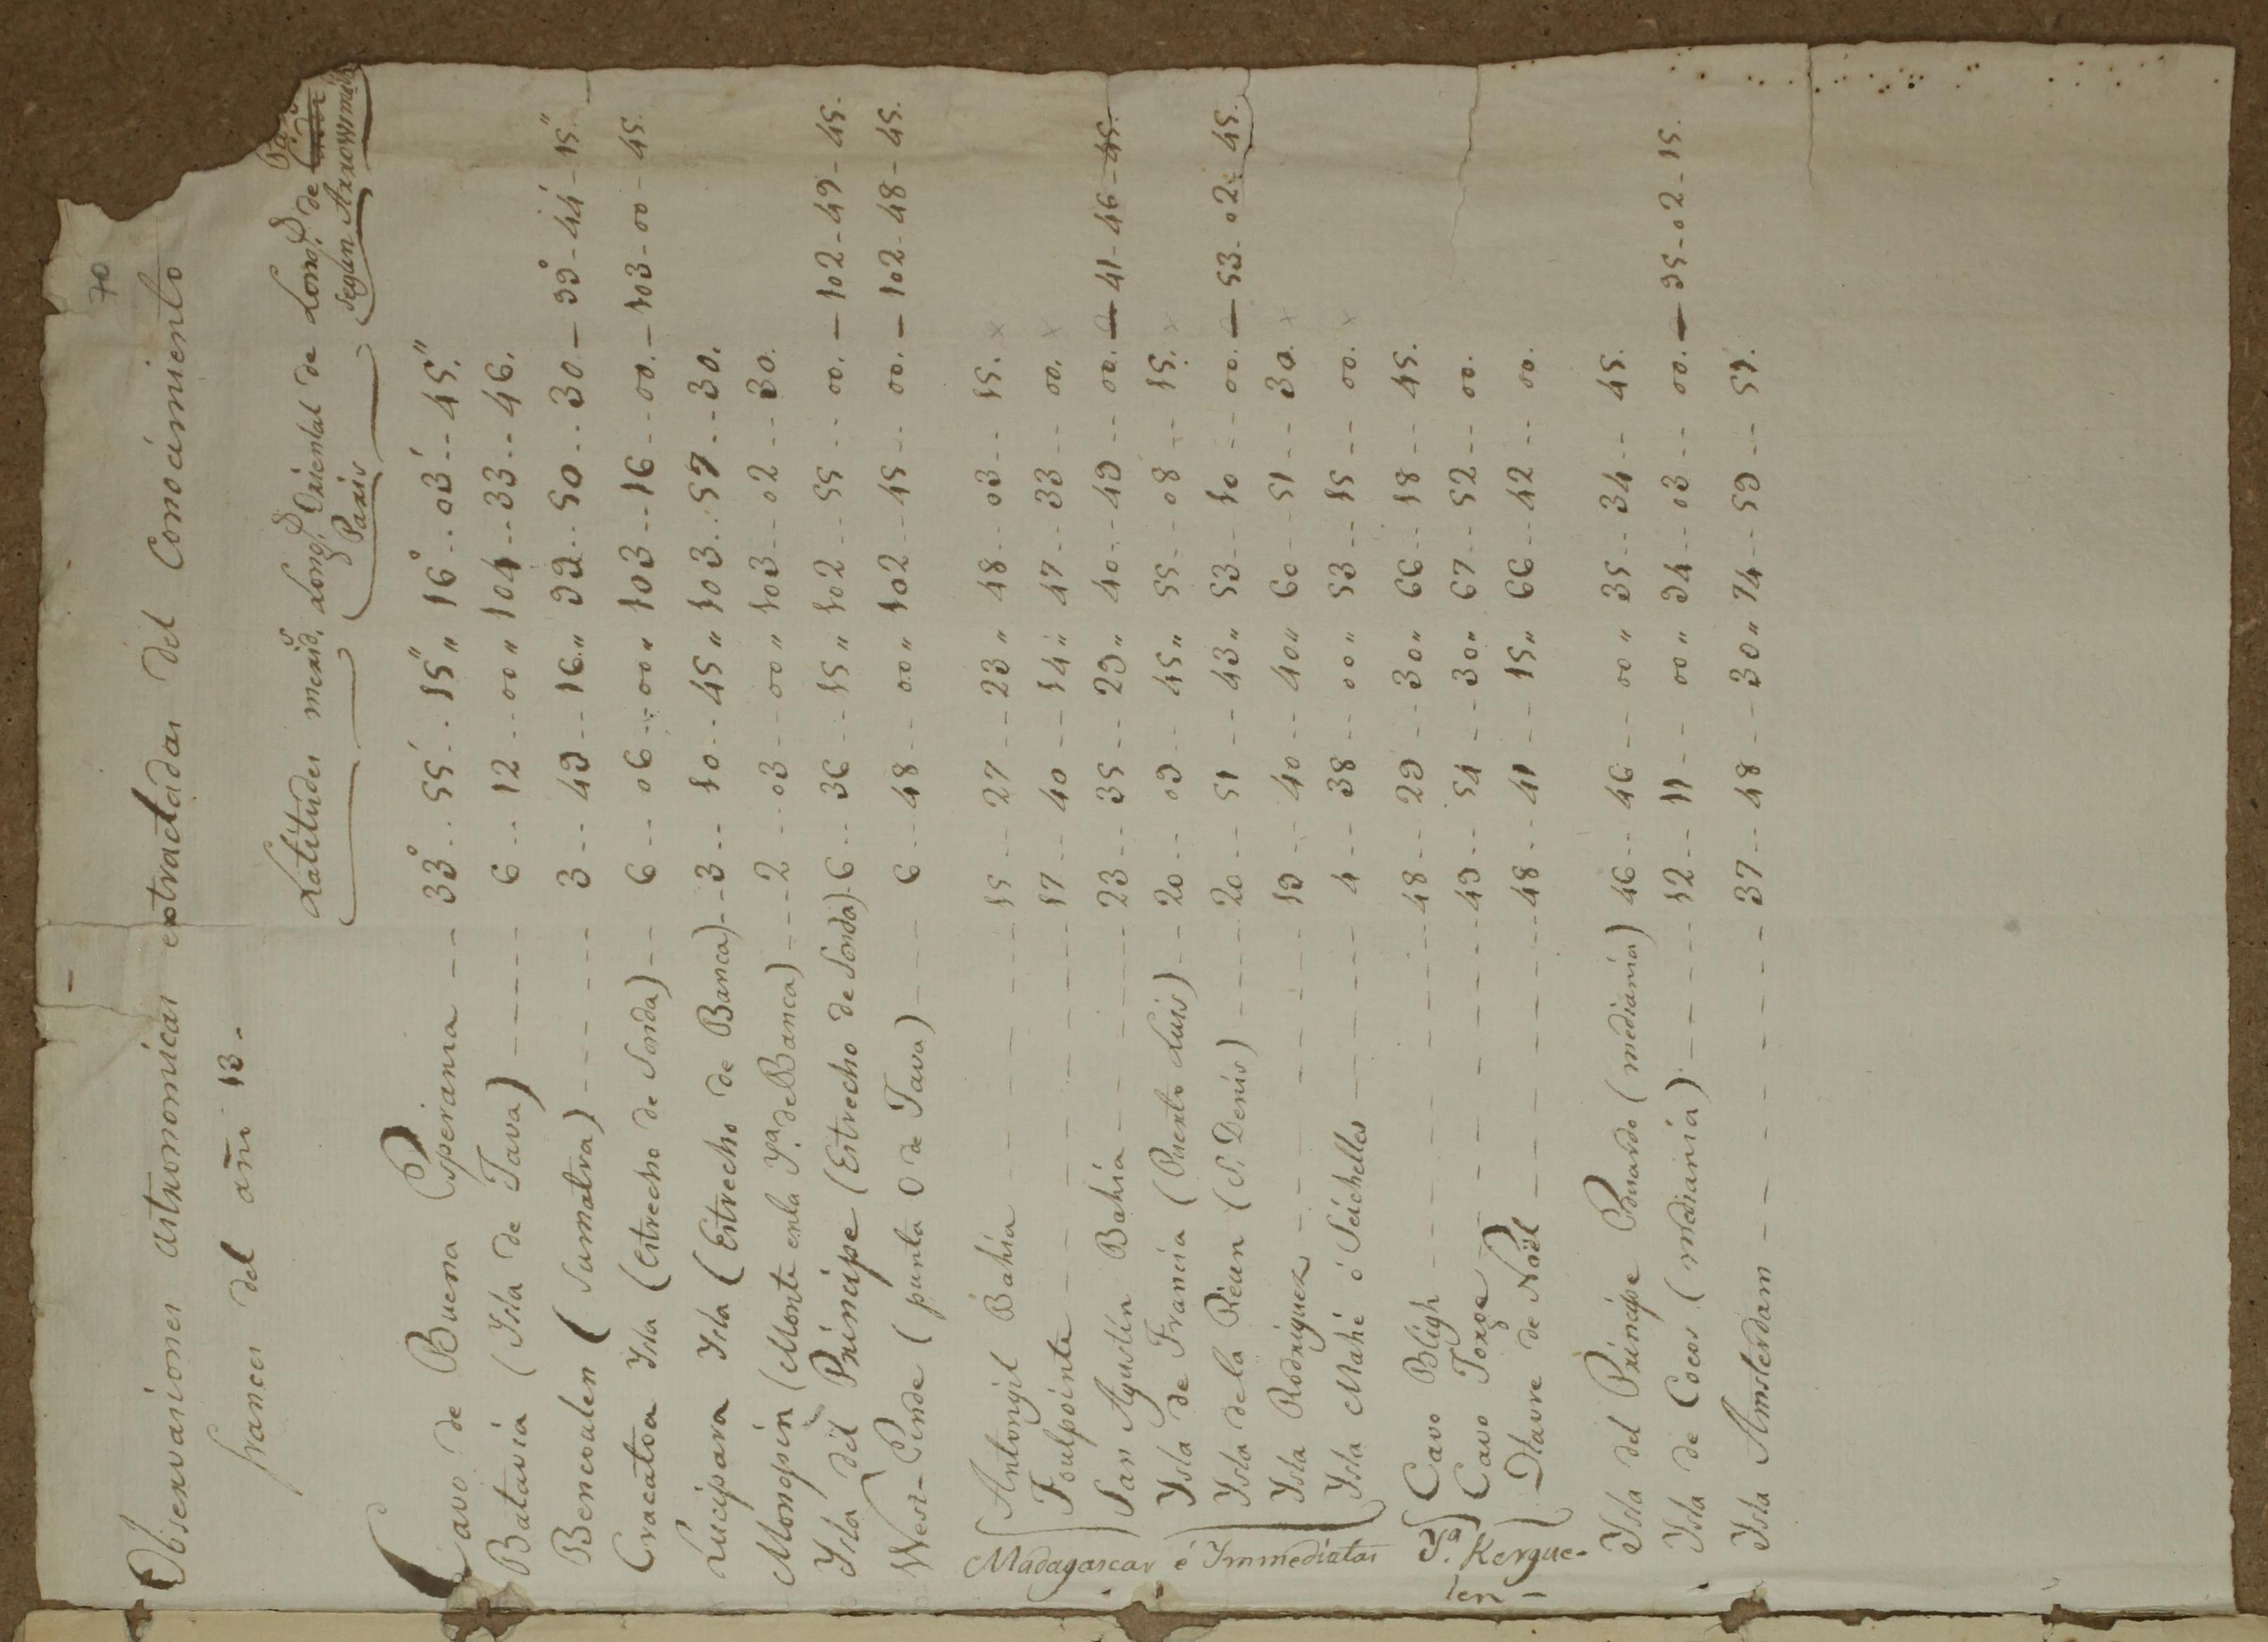 70
Observaciones astronomicas extractadas del Conocimiento
frances del año 13.
Latitudes merid.s Long.d Oriental de Paris Long.d de segun Arrowmith
Cavo de Buena Esperanza --- 33° .. 55' .. 15" „ 16° .. 03' .. 45."
Batavia (Ysla de Java) ----- 6 --- 12 --- 00 „ 104 -- 33 -- 46.
Bencoulen (Sumatra) ---- 3 -- 49 -- 16 „ 99 -- 50 -- 30. — 99° - 44' - 15"
Cracatoa Ysla (Estrecho de Sonda) -- 6 -- 06 -- 00 „ 103 -- 16 -- 00. — 103 - 00 - 45.
Lucipara Ysla (Estrecho de Banca) -- 3 -- 10 -- 45 „ 103 .. 57 -- 30.
Monopin (Monte en la Ys.a de Banca) --- 2 -- 03 -- 00 „ 103 -- 02 -- 30.
Ysla del Principe (Estrecho de Sonda) - 6 -- 36 -- 15 „ 102 -- 55 -- 00. — 102 - 49 - 45.
West-Pende (punta O de Java) --- 6 -- 48 -- 00 „ 102 -- 45 -- 00. — 102 - 48 - 45.
Madagascar é Immediatas
Antongil Bahia ---- 15 -- 27 -- 23 „ 48 -- 03 -- 15. x
Foulpointe ------ 17 -- 40 -- 14 „ 47 -- 33 -- 00. x
San Agustin Bahia ---- 23 -- 35 -- 29 „ 40 -- 49 -- 00. — 41 - 46 - 45.
Ysla de Francia (Puerto Luis) -- 20 -- 09 -- 45 „ 55 -- 08 -- 15. x
Ysla de la Réun (S. Denis) ---- 20 -- 51 -- 43 „ 53 -- 10 --- 00. — 53 - 02 - 45.
Ysla Rodriguez ------ 19 -- 40 -- 40 „ 60 -- 51 -- 30. x
Ysla Mahé ó Seichelles ---- 4 -- 38 -- 00 „ 53 -- 15 -- 00. x
Ys.a Kerguelen
Cavo Bligh ------ 48 -- 29 -- 30 „ 66 -- 18 -- 45.
Cavo Jorge ------ 49 -- 54 -- 30 „ 67 -- 52 -- 00.
Havre de Noël ----- 48 -- 41 -- 15 „ 66 -- 42 -- 00.
Ysla del Principe Eduardo (mediania) 46 -- 46 --- 00 „ 35 -- 34 -- 45.
Ysla de Cocos (mediania) ---- 12 -- 11 -- 00 „ 94 -- 03 -- 00. — 95 - 02 - 15.
Ysla Amsterdam ------ 37 -- 48 -- 30 „ 74 -- 59 -- 51.